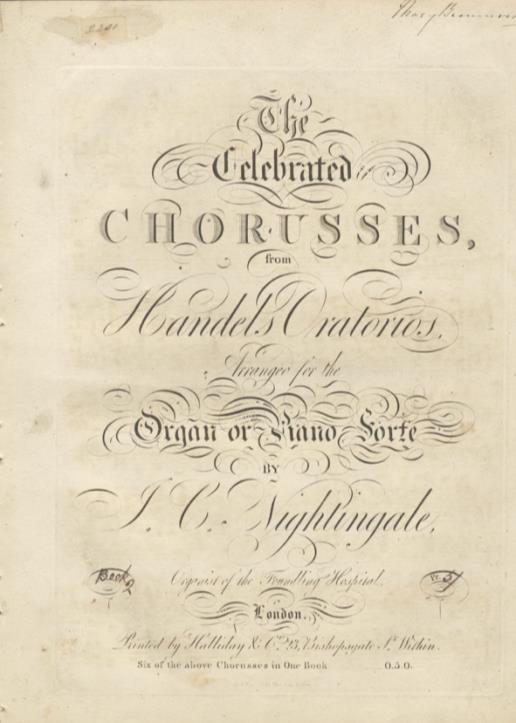 The
Celebrated
CHORUSSES,
from
Handel's Oratorios,
Arranged for the
Organ or Piano Forte
BY
J. C. Nightingale,
Book 2
Pr. 5/
Organist of the Foundling Hospital.
London.
Printed by Halliday & Co. 23, Bishopsgate St. Within.
Six of the above Chorusses in One Book 0.5.0.